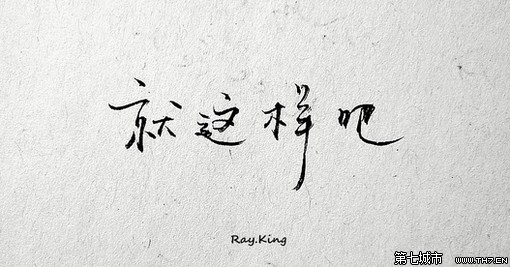 就这样吧
Ray.King
第七城市 WWW.TH7.CN